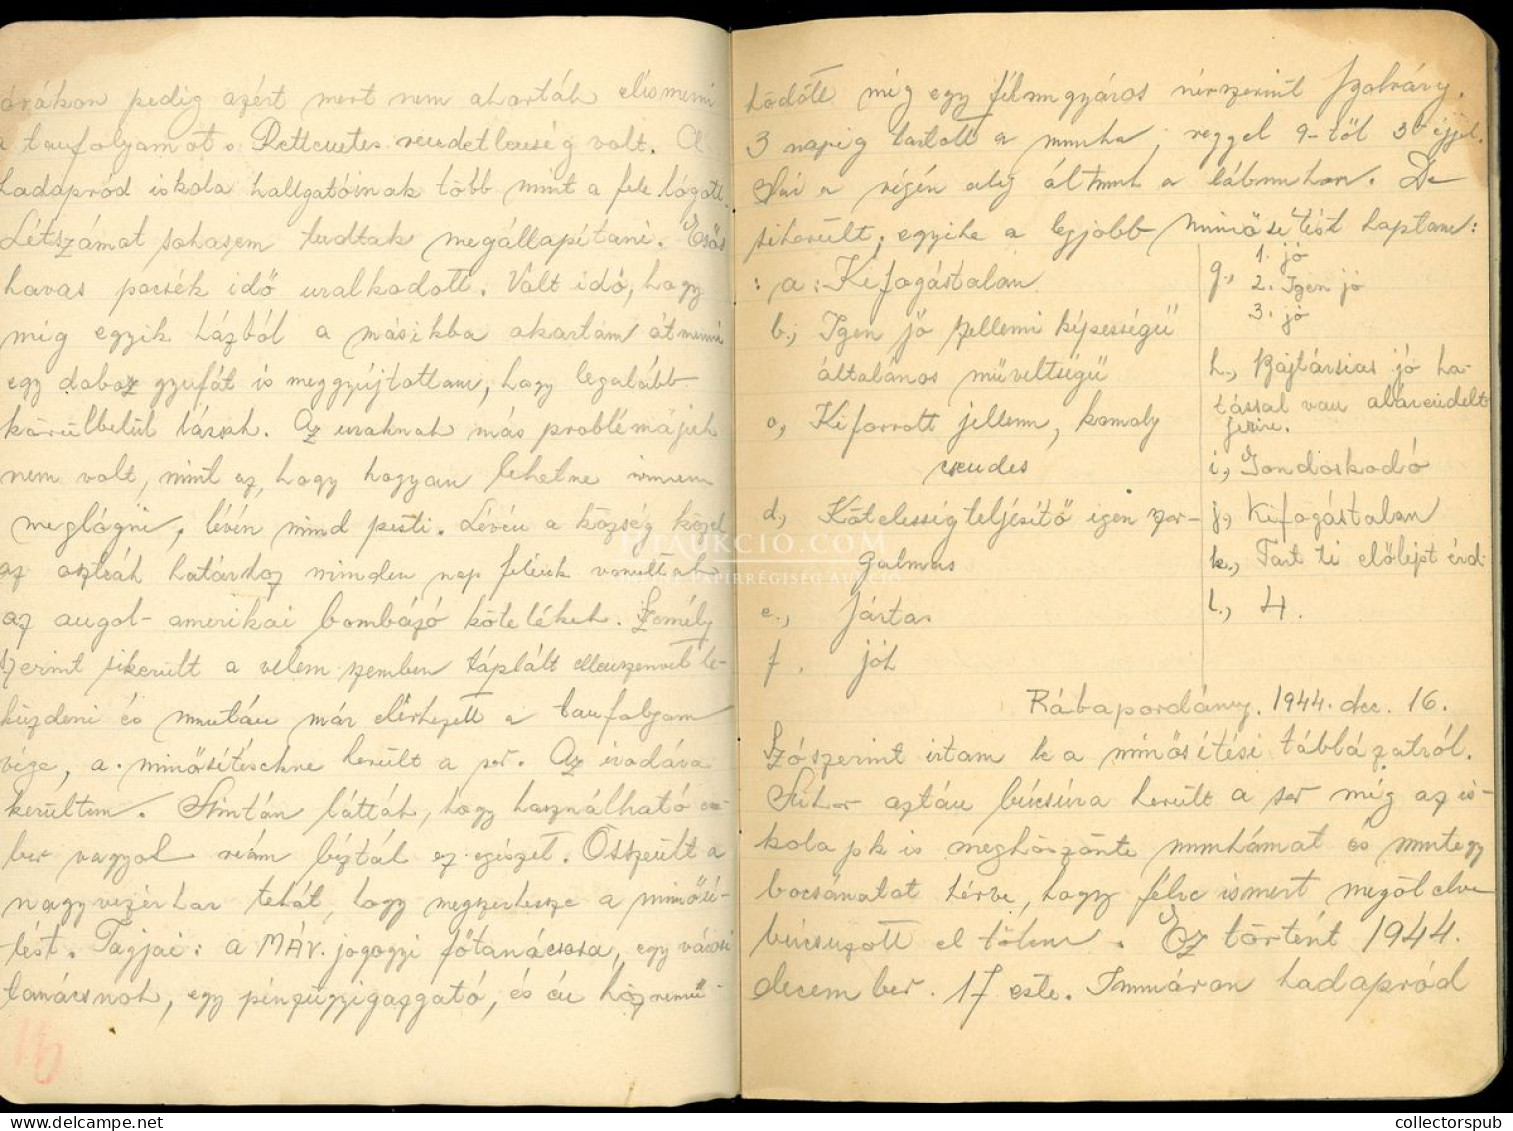 órákon pedig azért mert nem akarták elismerni
a tanfolyamot. Rettenetes rendetlenség volt. A
hadapród iskola hallgatóinak több mint a fele lógott.
Létszámot sohasem tudtak megállapítani. Esős
havas pocsék idő uralkodott. Volt idő, hogy
míg egyik házból a másikba akartam átmenni
egy doboz gyufát is meggyújtottam, hogy legalább
körülbelül lássak. Az uraknak más problémájuk
nem volt, mint az, hogy hogyan lehetne innen
meglógni, lévén mind pesti. Lévén a község közel
az osztrák határhoz minden nap felénk vonultak
az angol-amerikai bombázó kötelékek. Személy
szerint sikerült a velem szemben táplált ellenszenvet le-
küzdeni és miután már elérkezett a tanfolyam
vége, a minősítésekre került a sor. Az irodára
kerültem. Simtán látták, hogy használható em-
ber vagyok reám bízták az egészet. Összeült a
nagyvezérkar tehát, hogy megszerkessze a minősí-
tést. Tagjai: a MÁV. jogügyi főtanácsosa, egy városi
tanácsnok, egy pénzügyigazgató, és én közremű-
16
ködött még egy filmgyáros névszerint Szolváry.
3 napig tartott a munka, reggel 9-től 3h éjjel.
a végén alig álltunk a lábunkon. De
sikerült, egyike a legjobb minősítést kaptam:
: a: Kifogástalan
b., Igen jó szellemi képességű
általános műveltségű
c, Kiforrott jellem, komoly
csendes
d., Kötelességteljesítő igen szor-
galmas
e., Jártas
f. jók
g., 1. jó
2. Igen jó
3. jó
h., Bajtársias jó ha-
tással van alárendelt-
jeire.
i., Gondoskodó
j, Kifogástalan
k., Tart ti előlépt érd.
l., 4.
Rábapordány, 1944. dec. 16.
Szószerint irtam le a minősítési táblázatról.
Mikor aztán búcsúra került a sor még az is-
kola pk is megköszönte munkámat és mintegy
bocsánatot kérve, hogy félre ismert megölelve
búcsuzott el tőlem. Ez történt 1944.
december. 17 este. Immáron hadapród
HTAUKCIO.COM
PAPÍRRÉGISÉG AUKCIÓ
collectorspub